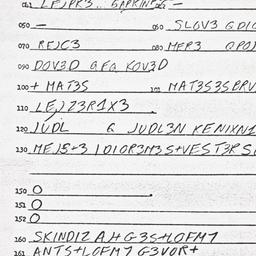 050 — 060 SLOV3 GDIC
070 REJC3 080 MFR3 OPO
090 DOV3D GFG KOV3D
100 + MAT3S 101 MAT3S3SBRV
110 LEJZ3R1X3
120 JUDL G JUDL3N KENIXN1
130 MEJS+3 IDIOR3M3S+VEST3RS
150 O
151 O
152 O
160 SKINDIZAH G3S+LOFM7
161 ANTS+LOFM7 G3VOR+